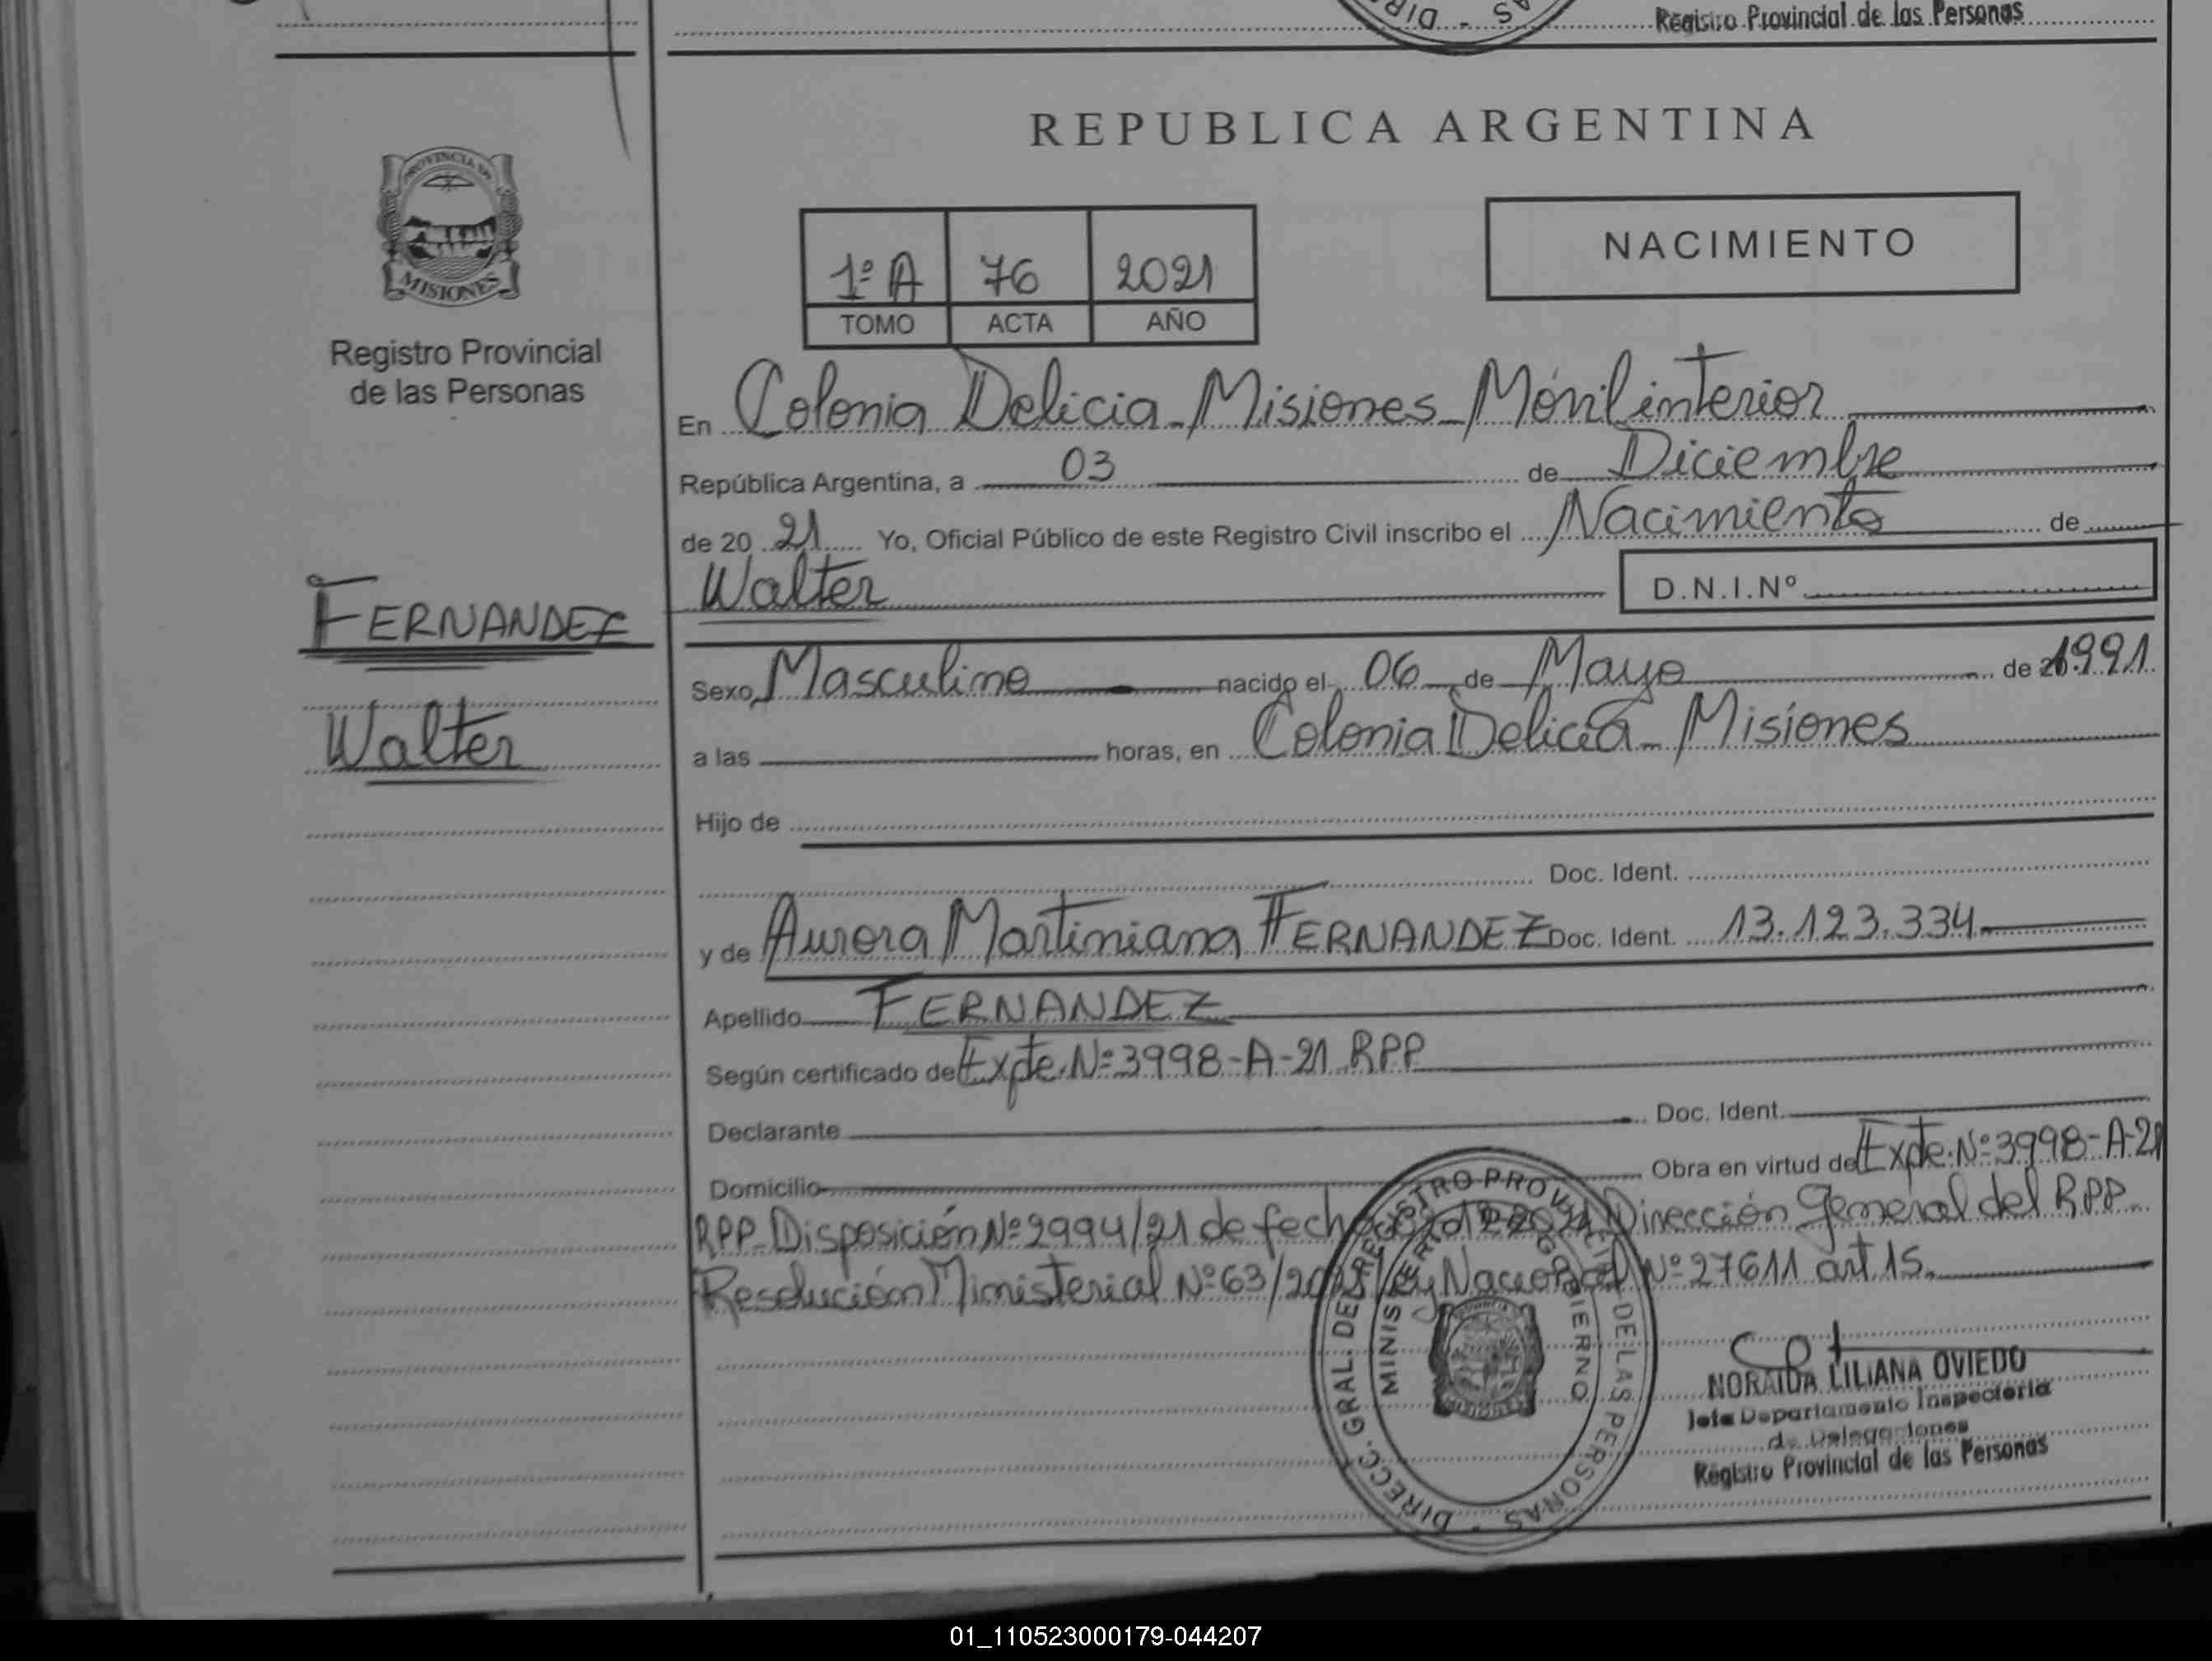 Registro Provincial de las Personas
REPUBLICA ARGENTINA
PROVINCIA DE
MISIONES
Registro Provincial
de las Personas
NACIMIENTO
1º A 76 2021
TOMO ACTA AÑO
En Colonia Delicia - Misiones - Móvil interior
República Argentina, a 03 de Diciembre
de 20 21 Yo, Oficial Público de este Registro Civil inscribo el Nacimiento de
Walter D.N.I.Nº
FERNANDEZ
Walter
Sexo Masculino nacido el 06 de Mayo de 1991
a las horas, en Colonia Delicia - Misiones
Hijo de
Doc. Ident.
y de Aurora Martiniana FERNANDEZ Doc. Ident. 13.123.334
Apellido FERNANDEZ
Según certificado de Expte. Nº 3998-A-21 RPP
Declarante Doc. Ident.
Domicilio Obra en virtud de Expte. Nº 3998-A-21
RPP - Disposición Nº 2994/21 de fecha Dirección General del RPP -
Resolución Ministerial Nº 63/2021 Ley Nacional Nº 27611 art 15.
DIRECC. GRAL. DE REGISTRO PROVINCIAL DE LAS PERSONAS
MINISTERIO DE GOBIERNO
MISIONES
NORAIDA LILIANA OVIEDO
Jefa Departamento Inspectoría
de Delegaciones
Registro Provincial de las Personas
01_110523000179-044207